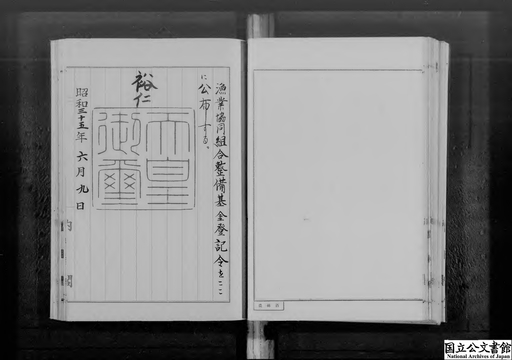 漁業協同組合整備基金登記令をここ
に公布する。
裕仁
天皇御璽
昭和三十五年六月九日
内閣
国立公文書館
National Archives of Japan